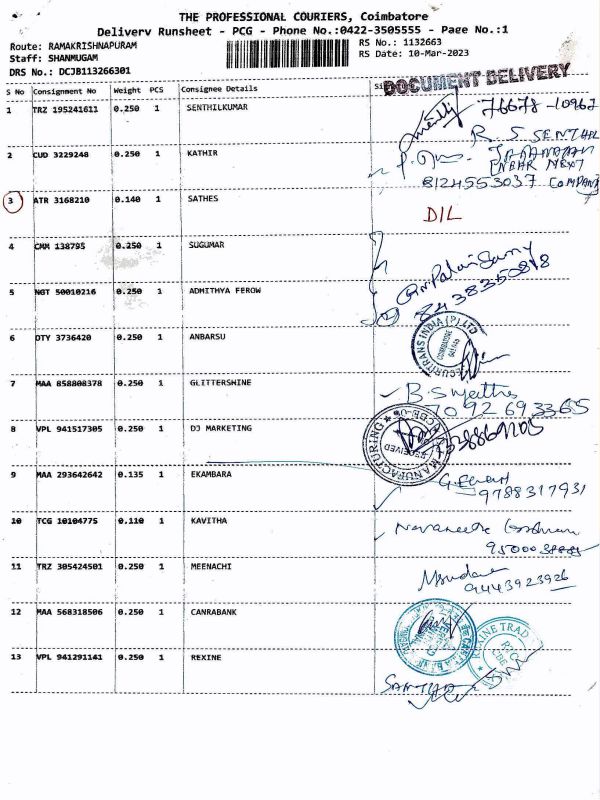 THE PROFESSIONAL COURIERS, Coimbatore
Delivery Runsheet - PCG - Phone No.:0422-3505555 - Page No.:1
Route: RAMAKRISHNAPURAM
RS No.: 1132663
Staff: SHANMUGAM
RS Date: 10-Mar-2023
DRS No.: DCJB113266301
DOCUMENT DELIVERY
S No Consignment No Weight PCS Consignee Details
1 TRZ 195241611 0.250 1 SENTHILKUMAR
76678-10962
R S SENTHIL
2 CUD 3229248 0.250 1 KATHIR
NEAR NEXT
8124553037 COMPANY
3 ATR 3168210 0.140 1 SATHES
DIL
4 CMM 138795 0.250 1 SUGUMAR
8438350848
5 NGT 50010216 0.250 1 ADHITHYA FEROW
6 DTY 3736420 0.250 1 ANBARSU
SECURITRANS INDIA (P) LTD
COIMBATORE
7 MAA 858808378 0.250 1 GLITTERSHINE
7092693365
8 VPL 941517305 0.250 1 DJ MARKETING
MANUFACTURING
RECEIVED
9 MAA 293642642 0.135 1 EKAMBARA
9788317931
10 TCG 10104775 0.110 1 KAVITHA
11 TRZ 305424501 0.250 1 MEENACHI
9443923926
12 MAA 568318506 0.250 1 CANRABANK
13 VPL 941291141 0.250 1 REXINE